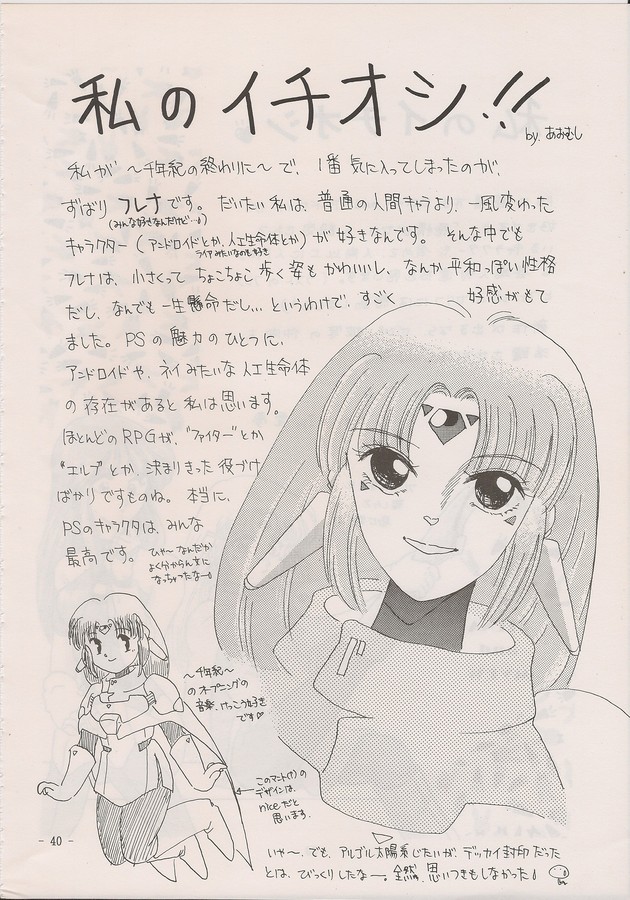 私のイチオシ!!
by. あおむし
私が 〜千年紀の終わりに〜 で、1番 気に入ってしまったのが、
ずばり フレナです。だいたい私は、普通の人間キャラより、一風変わった
(みんな好きなんだけど…♪)
キャラクター (アンドロイドとか、人工生命体とか) が 好きなんです。そんな中でも
ライアみたいなのも好き
フレナは、小さくって ちょこちょこ 歩く 姿も かわいいし、なんか 平和っぽい性格
だし、なんでも 一生懸命だし… というわけで、すごく 好感がもて
ました。PSの 魅力の ひとつに、
アンドロイドや、ネイみたいな 人工生命体
の 存在があると 私は思います。
ほとんどのRPGが、"ファイター"とか
"エルフ"とか、決まりきった 役づけ
ばかりですものね。本当に、
PSのキャラクタは、みんな
最高です。
ひゃ〜なんだか
よく分からん文に
なっちゃったなー♪
〜千年紀〜
のオープニングの
音楽、けっこう好き
です♡
このマント(?)の
デザインは、
niceだと
思います。
いや〜、でも、アルゴル太陽系じたいが、デッカイ封印だった
とは、びっくりしたなー。全然、思いつきもしなかった♪
- 40 -